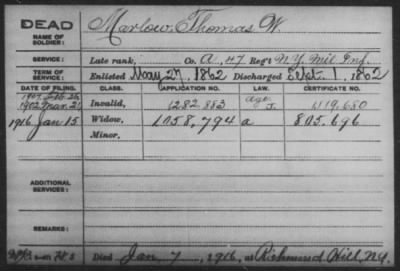 DEAD
NAME OF SOLDIER: Marlow, Thomas W.
SERVICE: Late rank, Co. A, 47 Reg't N.Y. Mil Inf.
TERM OF SERVICE: Enlisted May 27, 1862 Discharged Sept. 1, 1862
DATE OF FILING. CLASS. APPLICATION NO. LAW. CERTIFICATE NO.
1907 Feb. 26 Age
1902 Mar. 21 Invalid, 1282,883 J. 1119,680
1916 Jan 15 Widow, 1058,794 a 805,696
Minor,
ADDITIONAL SERVICES:
REMARKS:
Died Jan 7, 1916, at Richmond Hill, NY.